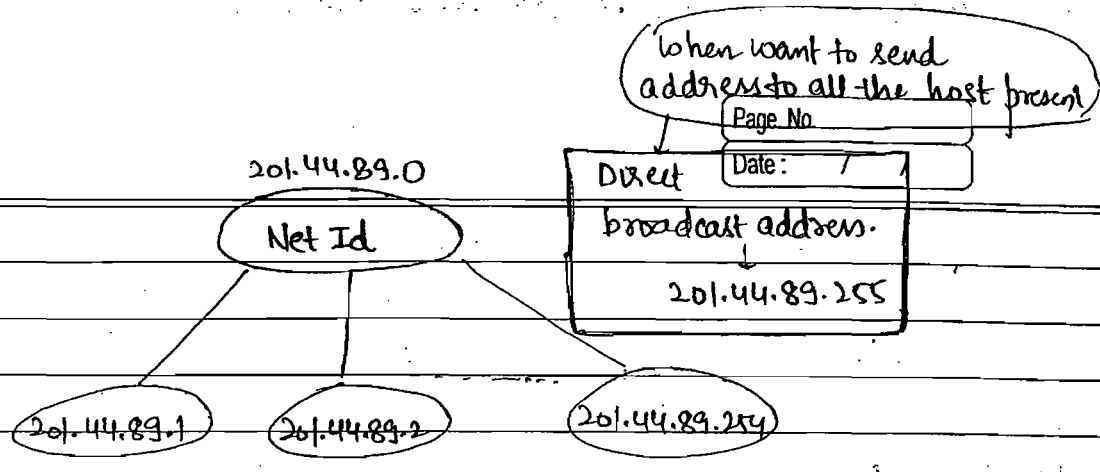 When want to send
address to all the host present
Page No
Date: / /
201.44.89.0
Direct
broadcast address.
Net Id
201.44.89.255
201.44.89.1
201.44.89.2
201.44.89.254